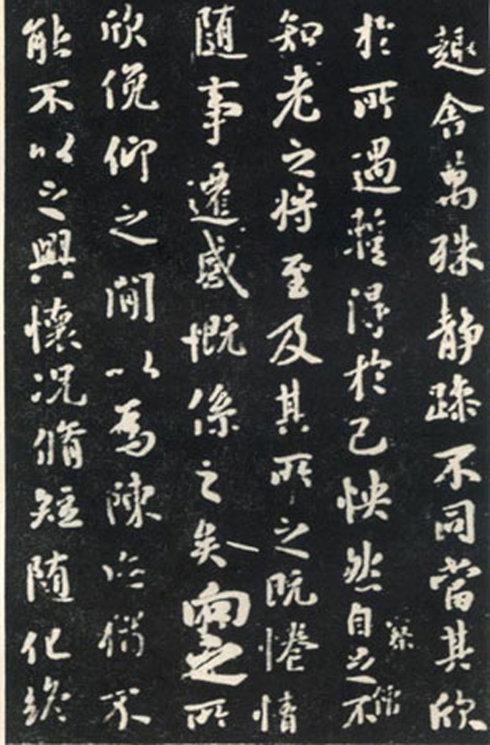 趣舍萬殊静躁不同當其欣
察僧
於所遇蹔得於己怏然自足不
知老之將至及其所之既惓情
随事遷感慨係之矣向之所
欣俛仰之間以為陳迹猶不
能不以之興懷况脩短随化終